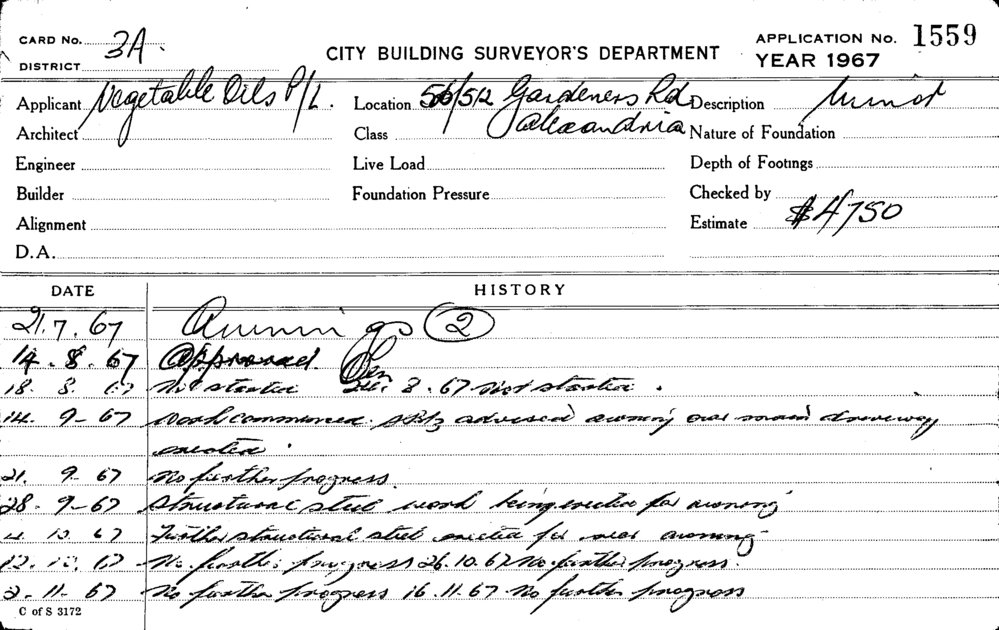 CARD No. 3A. CITY BUILDING SURVEYOR'S DEPARTMENT APPLICATION No. 1559
DISTRICT YEAR 1967
Applicant Vegetable Oils P/L. Location 50/512 Gardeners Rd Description Minor
Architect Class Alexandria Nature of Foundation
Engineer Live Load Depth of Footings
Builder Foundation Pressure Checked by
Alignment Estimate $4750
D.A.
DATE HISTORY
21.7.67 Awnings (2)
14.8.67 Approved.
18.8.67 Not started 8.67 Not started.
14.9-67 Work commenced. advised awning over main driveway
erected.
21.9-67 No further progress.
28.9-67 Structural steel work being erected for awning
4 10 67 Further structural steel erected for awning
12.10.67 No further progress 26.10.67 No further progress.
2-11-67 No further progress 16.11.67 No further progress
C of S 3172